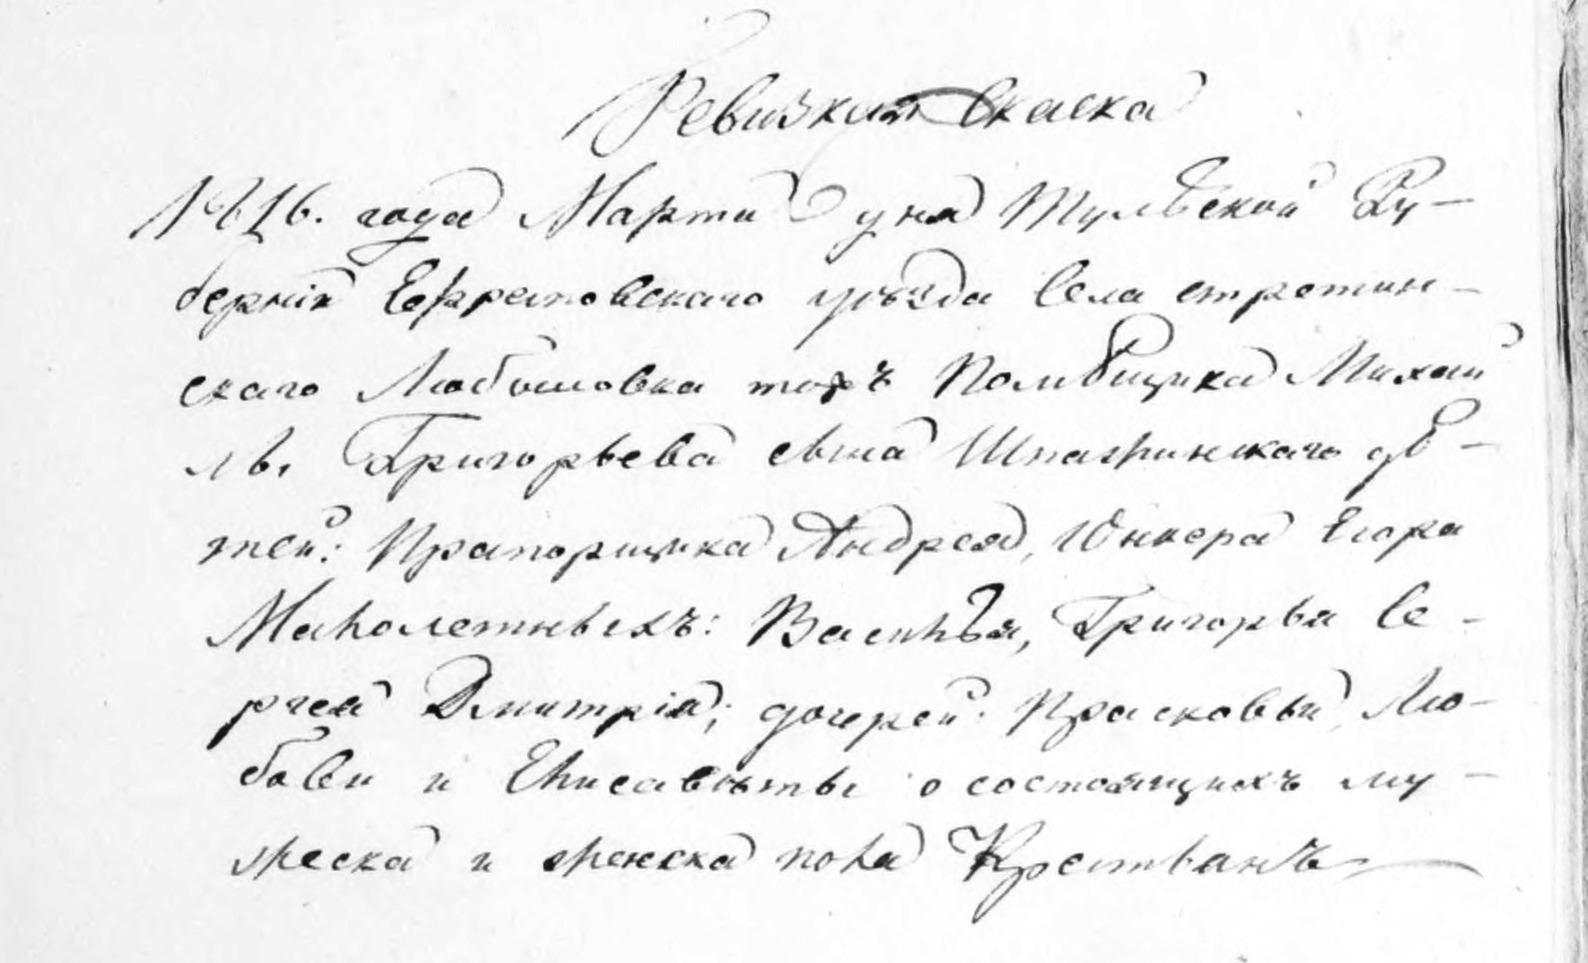 Ревизкая Скаска
1816. года Марта дня Тулѣской Гу-
берніи Ефремовскаго уѣзда Села стретин-
скаго Любашовка тожъ Помѣщика Михаи
лы Григорьева сына Шпагинскаго дѣ-
тей: Прапорщика Андрея, Юнкера Егора
Малолетныхъ: Василья, Григорья Се-
ргея Дмитрія; дочерей: Прасковьи, Лю-
бови и Елисавѣты о состоящихъ му-
жеска и женска пола Крестьянъ